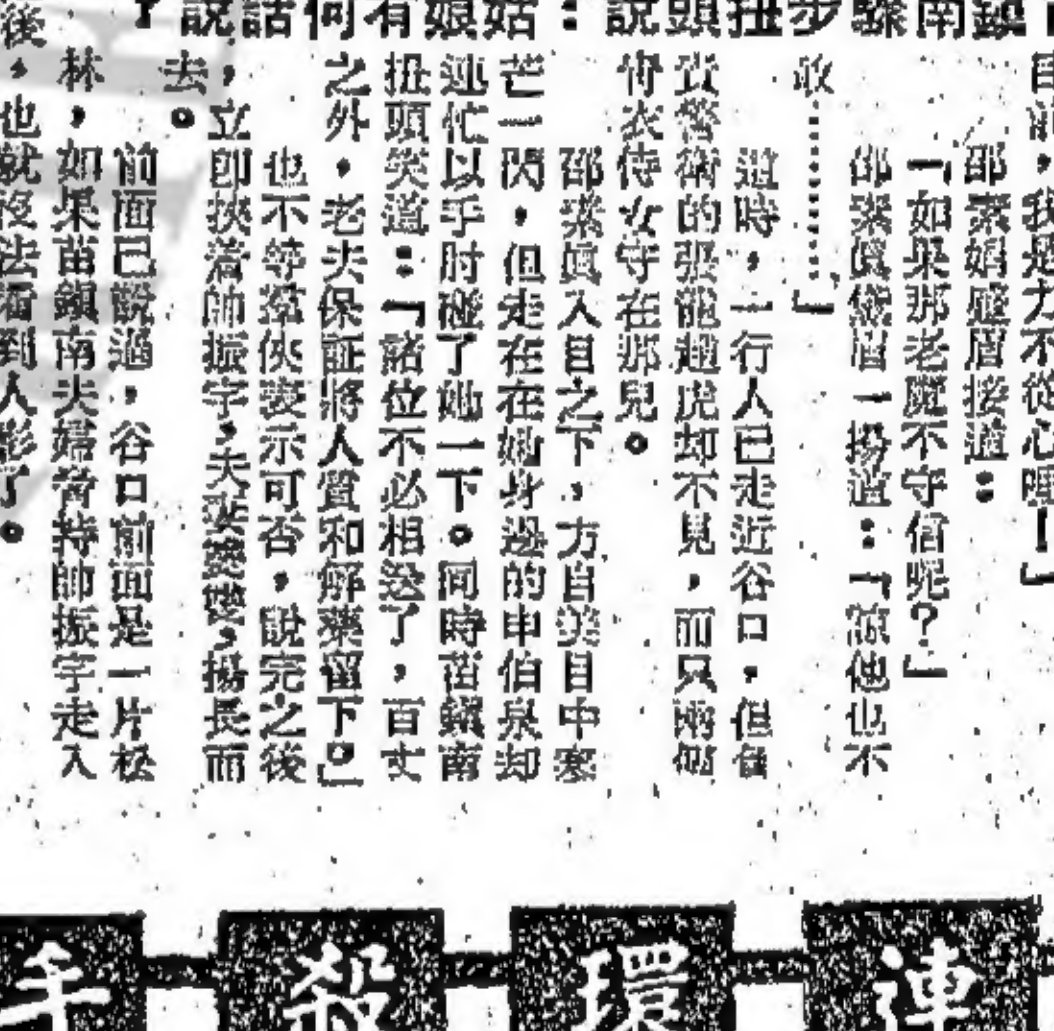 鎮南驟步扭頭說：姑娘有何話說？
目前，我是力不從心嘿！」
邵素娟蹙眉接道：
「如果那老魔不守信呢？」
邵素真黛眉一揚道：「諒他也不
敢…………」
這時，一行人已走近谷口，但負
責警衛的張龍趙虎却不見，而只兩個
青衣侍女守在那兒。
邵素真入目之下，方自美目中寒
芒一閃，但走在在她身邊的申伯泉却
連忙以手肘碰了她一下。同時苗鎮南
扭頭笑道：「諸位不必相送了，百丈
之外，老夫保証將人質和解藥留下。」
也不等羣俠表示可否，說完之後
，立即挾着帥振宇，夫妻雙雙，揚長而
去。
前面已說過，谷口前面是一片松
林，如果苗鎮南夫婦脅持帥振宇走入
後，也就沒法看到人影了。
連環殺手